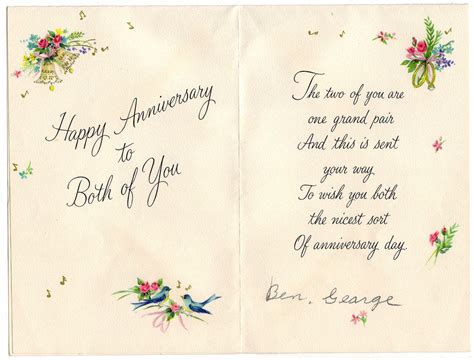 Happy Anniversary
to
Both of You
The two of you are
one grand pair
And this is sent
your way
To wish you both
the nicest sort
Of anniversary day.
Ben, George